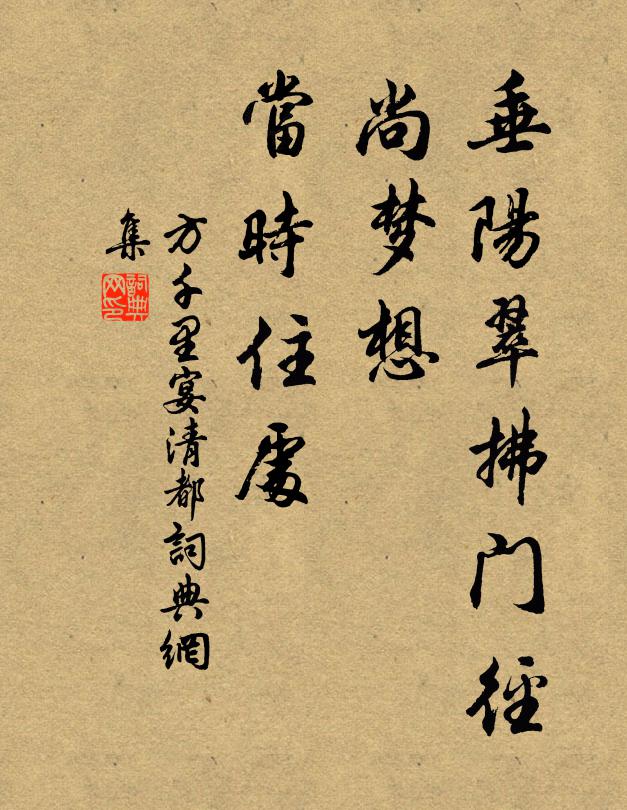 垂陽翠拂門径
尚梦想
當時住處
方千里宴清都詞典網
集
詞典
网印